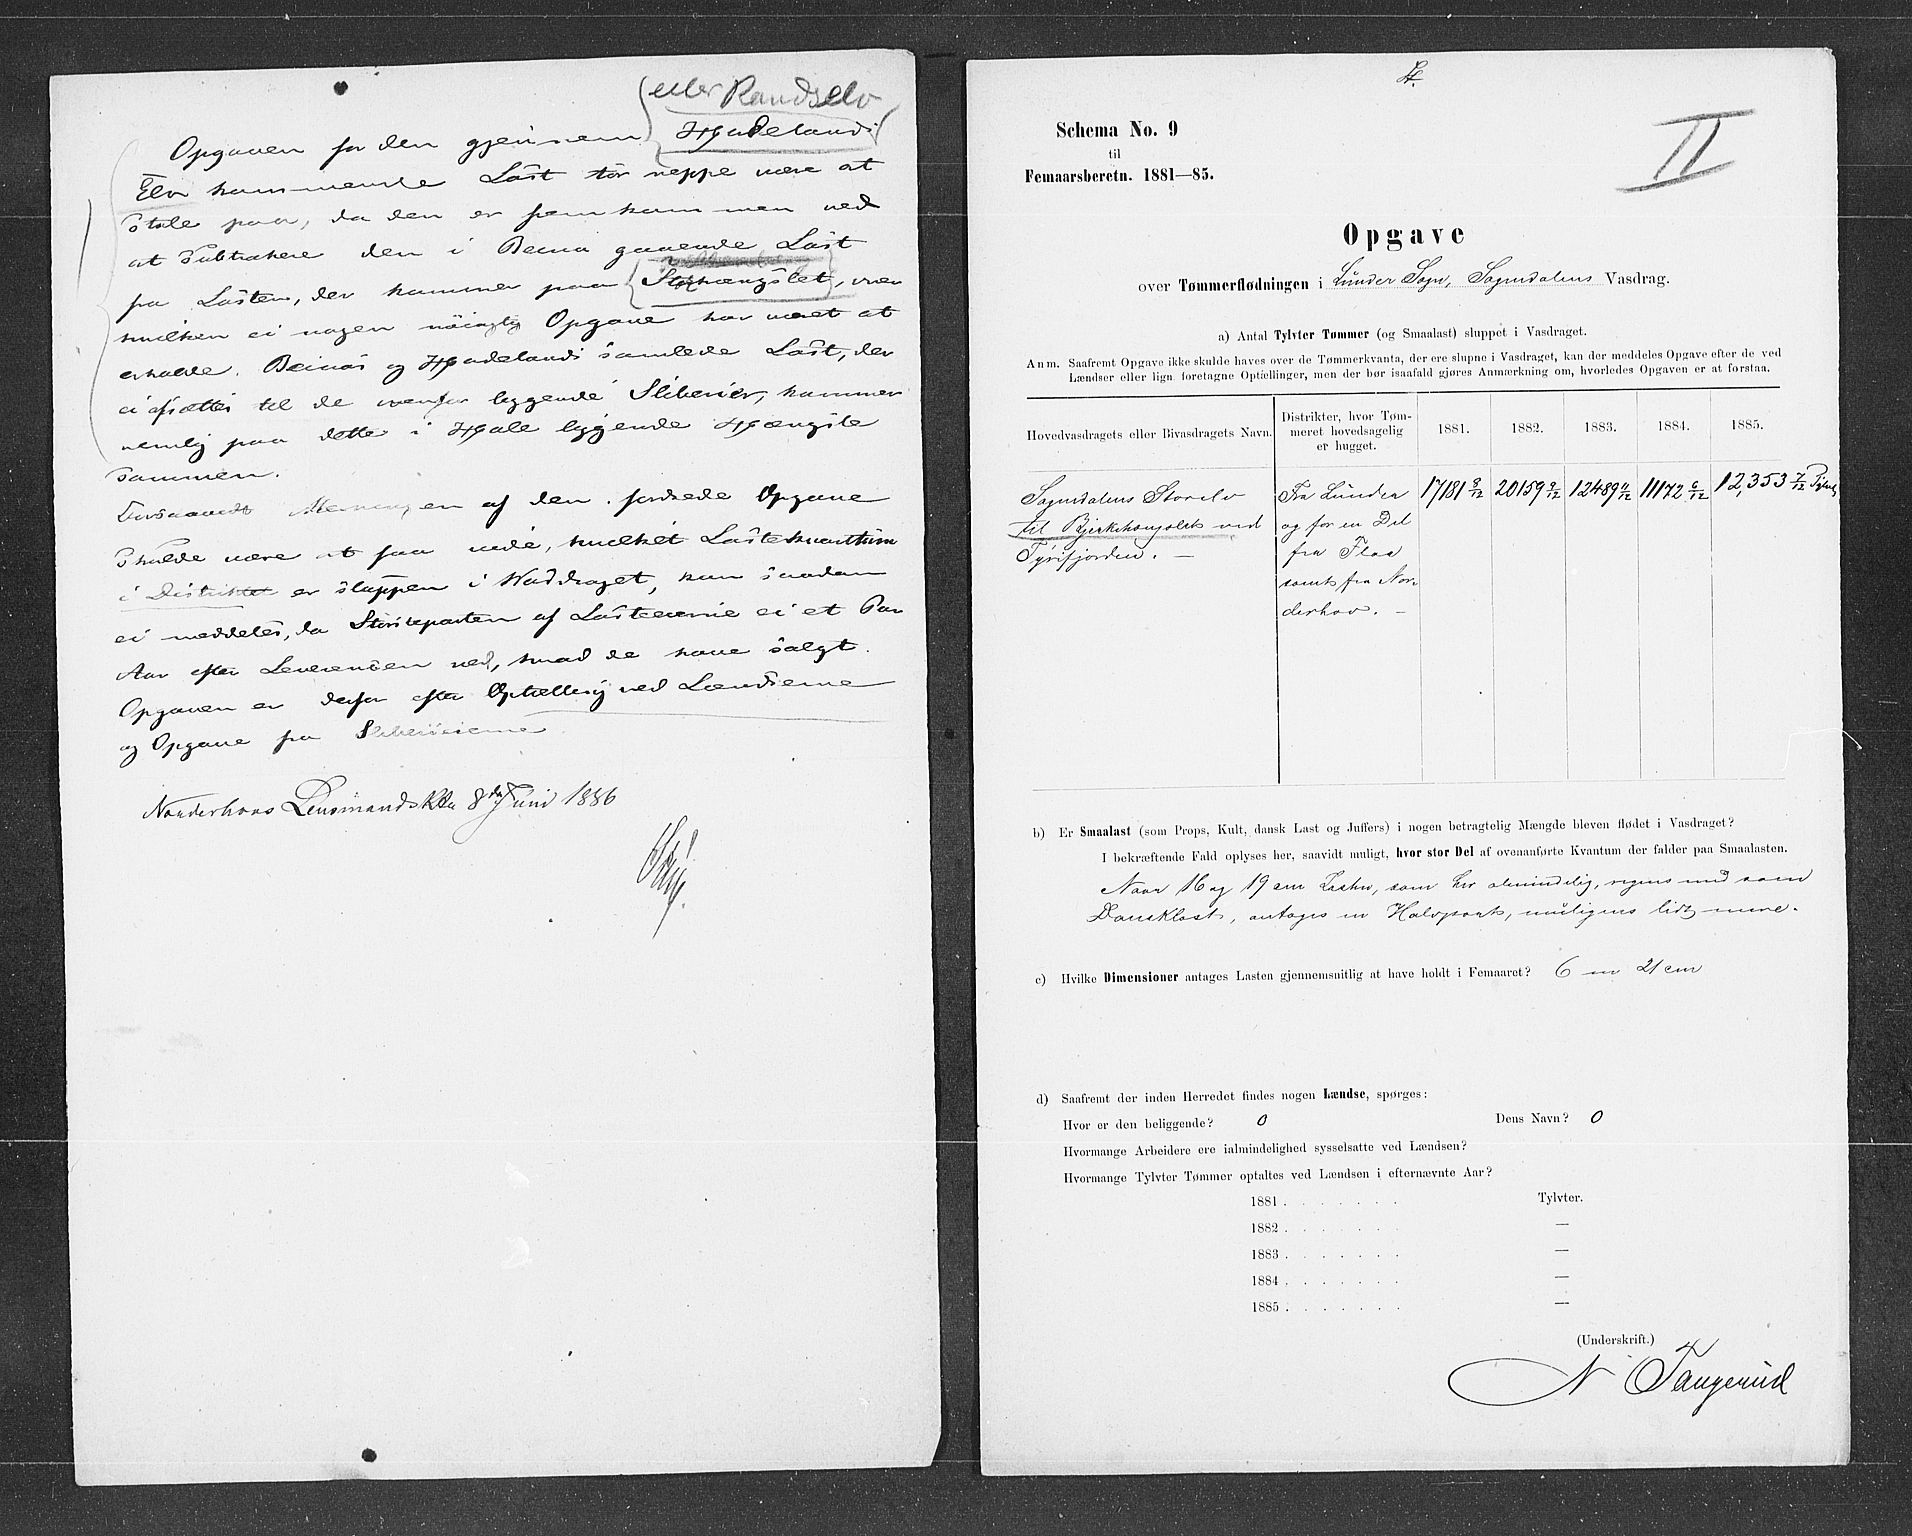 eller Randselv
Opgaven for den gjennem Hadelands
Elv kommende Last tør neppe være at
stole paa, da den er fremkommen ved
at subtrahere den i Beina gaaende Last
fra Lasten, der kommer paa Storhængslet, over
hvilken ei nogen nöiagtig Opgave har været at
erholde. Beinas og Hadelands samlede Last, der
ei afsættes til de ovenfor liggende Sliberier, kommer
nemlig paa dette i Hole liggende Hængsle
sammen.
Forsaavidt Meningen af den fordrede Opgave
skulde være at faa vide, hvilket Lastekvantum
i Distriktet er sluppen i Vasdraget, kan saadan
ei meddeles, da Störsteparten af Lasteierne ei et Par
Aar efter Leverensen ved, hvad de have solgt.
Opgaven er derfor efter Optælling ved Lændserne
og Opgave fra Sliberierne
Norderhovs Lensmandskktr 8de Juni 1886
Schema No. 9
til
Femaarsberetn. 1881—85.
II
Opgave
over Tømmerflødningen i Lunder Sogn, Sogndalens Vasdrag.
a) Antal Tylvter Tømmer (og Smaalast) sluppet i Vasdraget.
Anm. Saafremt Opgave ikke skulde haves over de Tømmerkvanta, der ere slupne i Vasdraget, kan der meddeles Opgave efter de ved
Lændser eller lign. foretagne Optællinger, men der bør isaafald gjøres Anmærkning om, hvorledes Opgaven er at forstaa.
Hovedvasdragets eller Bivasdragets Navn.
Distrikter, hvor Tøm-
meret hovedsagelig
er hugget.
1881. 1882. 1883. 1884. 1885.
Sogndalens Storelv
til Bjerkehengslets ved
Tyrifjorden. —
Fra Lunder
og for en Del
fra Flaa
samt fra Nor-
derhov. —
17181 8/12 20159 9/12 12489 11/12 11172 6/12 12,353 7/12 Tylvt
b) Er Smaalast (som Props, Kult, dansk Last og Juffers) i nogen betragtelig Mængde bleven flødet i Vasdraget?
I bekræftende Fald oplyses her, saavidt muligt, hvor stor Del af ovenanførte Kvantum der falder paa Smaalasten.
Naar 16 og 19 cm Laster, som her almindelig, regnes med som
Dansklast, antages en Halvpart, muligens lidt mere.
c) Hvilke Dimensioner antages Lasten gjennemsnitlig at have holdt i Femaaret? 6 m 21 cm
d) Saafremt der inden Herredet findes nogen Lændse, spørges:
Hvor er den beliggende? 0 Dens Navn? 0
Hvormange Arbeidere ere ialmindelighed sysselsatte ved Lændsen?
Hvormange Tylvter Tømmer optaltes ved Lændsen i efternævnte Aar?
1881 . . . . . . . Tylvter.
1882 . . . . . . . —
1883 . . . . . . . —
1884 . . . . . . . —
1885 . . . . . . . —
(Underskrift.)
N Tangerud